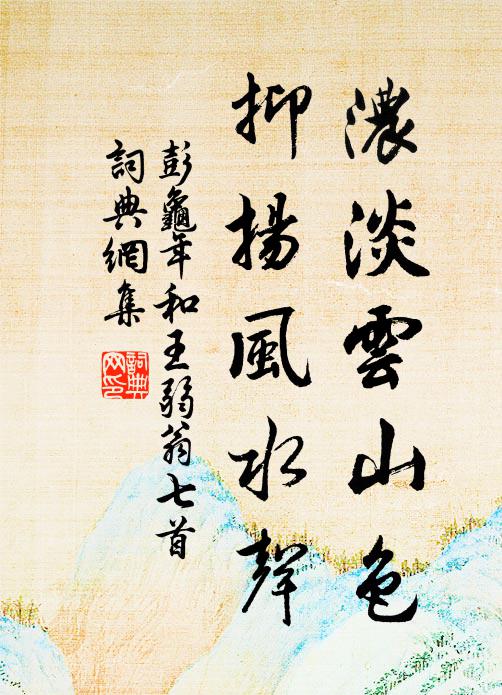 濃淡雲山色
抑揚風水聲
彭龜年和王弱翁七首
詞典網集
詞典
网印